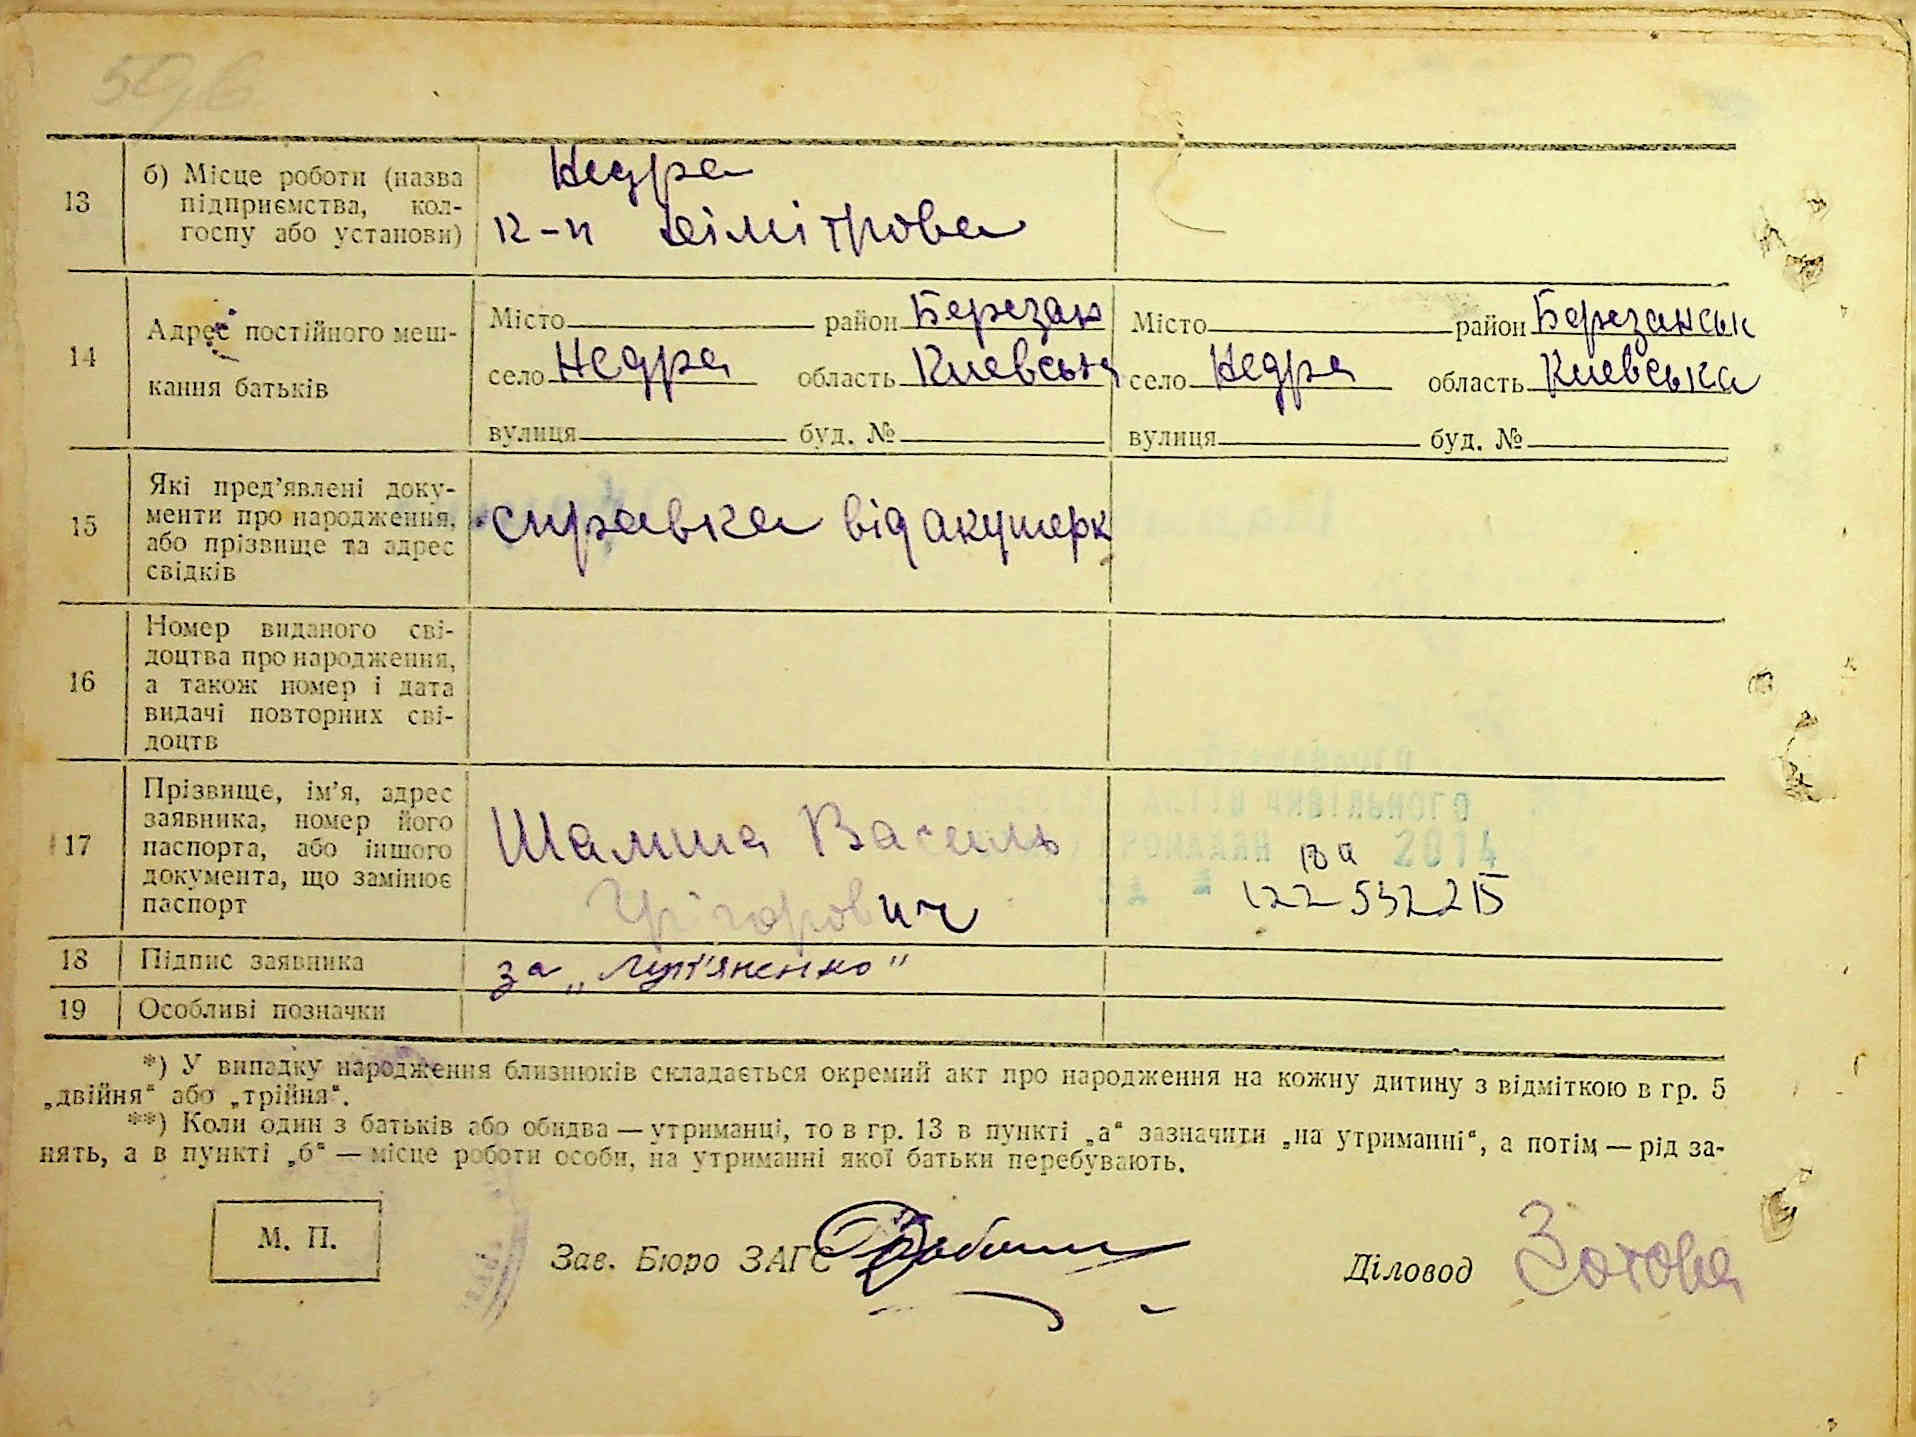 59б
13
б) Місце роботи (назва
підприємства, кол-
госпу або установи)
Недра
к-п Дімітрова
14
Адрес постійного меш-
кання батьків
Місто район Березан
село Недра область Киевська
вулиця буд. №
Місто район Березанськ
село Недра область Киевська
вулиця буд. №
15
Які пред'явлені доку-
менти про народження,
або прізвище та адрес
свідків
справка від акушерк
16
Номер виданого сві-
доцтва про народження,
а також номер і дата
видачі повторних сві-
доцтв
17
Прізвище, ім'я, адрес
заявника, номер його
паспорта, або іншого
документа, що замінює
паспорт
Шамша Василь
Григорович
актів цивільного
громадян 2014
18
Підпис заявника
за
19
Особливі позначки
*) У випадку народження близнюків складається окремий акт про народження на кожну дитину з відміткою в гр. 5
„двійня“ або „трійня“.
**) Коли один з батьків або обидва — утриманці, то в гр. 13 в пункті „а“ зазначити „на утриманні“, а потім — рід за-
нять, а в пункті „б“ — місце роботи особи, на утриманні якої батьки перебувають.
М. П.
Зав. Бюро ЗАГС
Діловод Зотова